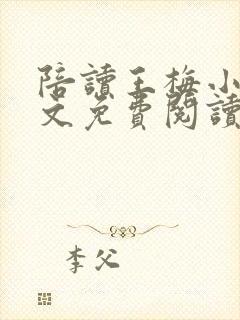 陪讀王梅小
文免費閱讀
李父